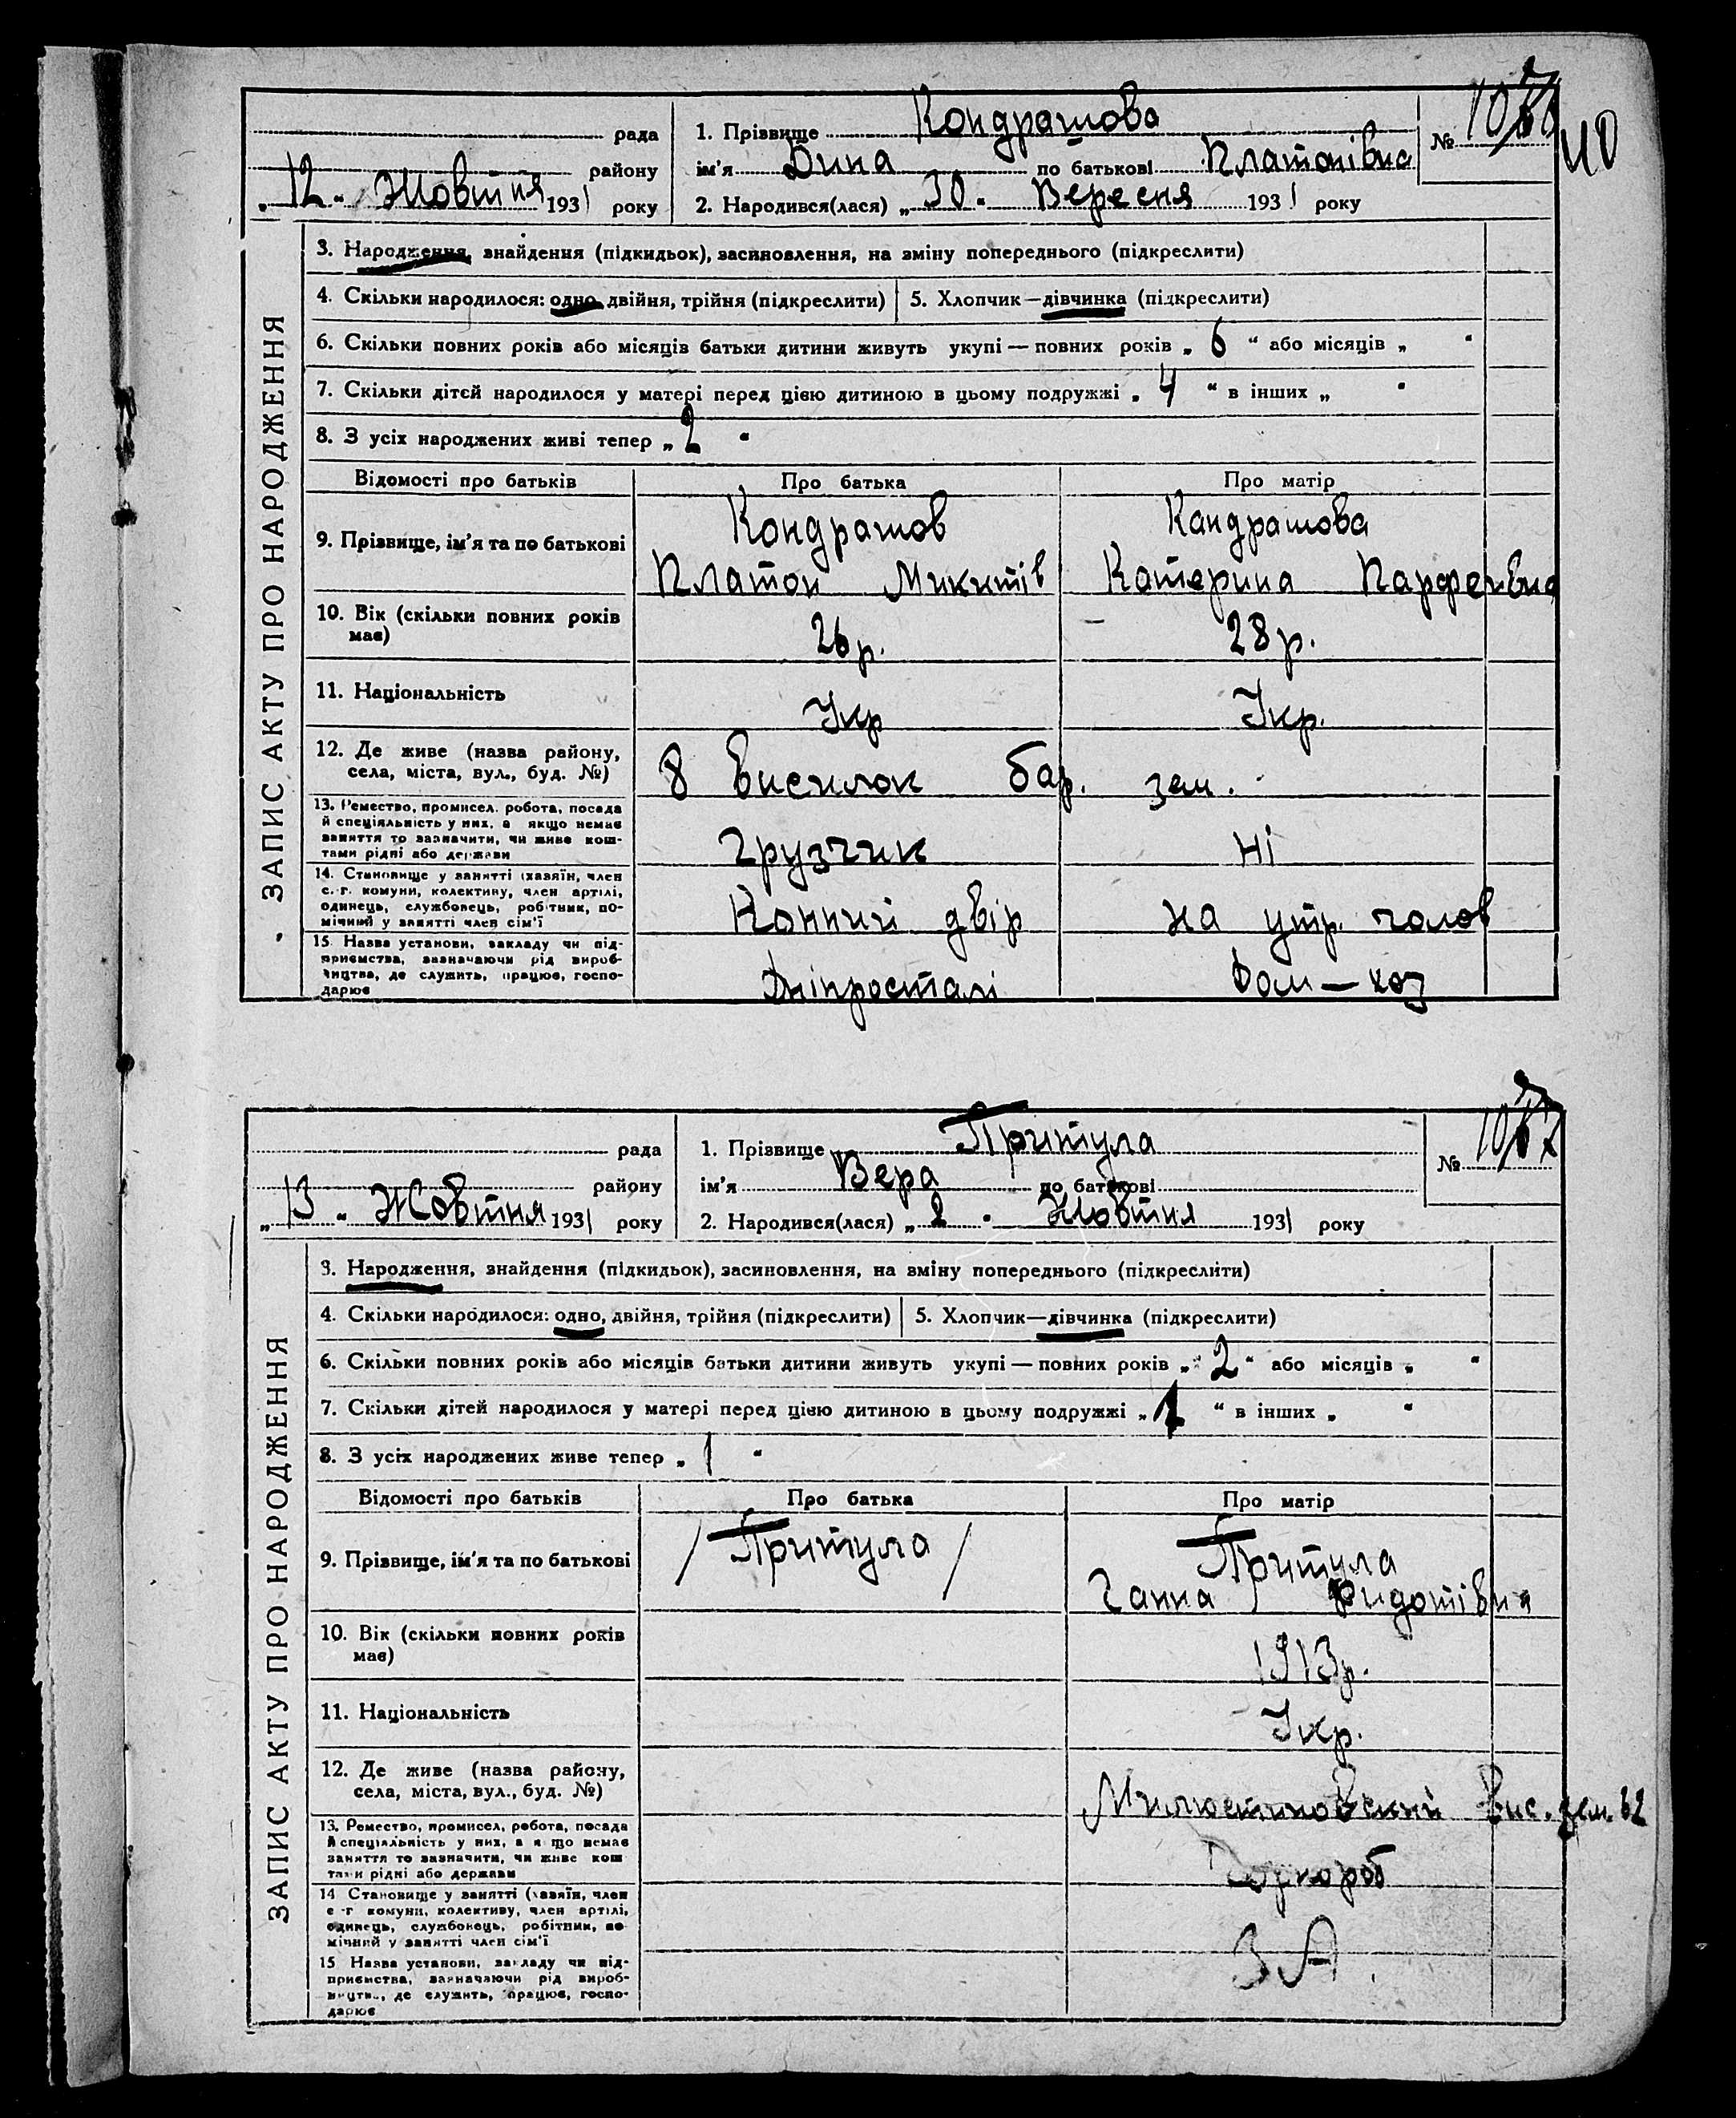 рада
1. Прізвище Кондрашова
№ 10
40
району
ім'я Дина по батькові Платонівна
„12" Жовтня 1931 року
2. Народився(лася) „30" Вересня 1931 року
ЗАПИС АКТУ ПРО НАРОДЖЕННЯ
3. Народження, знайдення (підкидьок), засиновлення, на зміну попереднього (підкреслити)
4. Скільки народилося: одно, двійня, трійня (підкреслити)
5. Хлопчик—дівчинка (підкреслити)
6. Скільки повних років або місяців батьки дитини живуть укупі — повних років „6" або місяців „ "
7. Скільки дітей народилося у матері перед цією дитиною в цьому подружжі „4" в інших „ "
8. З усіх народжених живі тепер „2"
Відомості про батьків Про батька Про матір
9. Прізвище, ім'я та по батькові
Кондрашов
Платон Микитів
Кандрашова
Катерина Парфенівна
10. Вік (скільки повних років має) 26 р. 28 р.
11. Національність Укр Укр.
12. Де живе (назва району, села, міста, вул., буд. №)
8 Висилок бар. зем.
13. Ремество, промисел, робота, посада
й спеціяльність у них, а якщо немає
заняття то зазначити, чи живе кош-
тами рідні або держави
Грузчик Ні
14. Становище у занятті (хазяїн, член
с.-г. комуни, колективу, член артілі,
одинець, службовець, робітник, по-
мічний у занятті член сім'ї
Конний двір на утр. голов
15. Назва установи, закладу чи під-
приємства, зазначаючи рід вироб-
ництва, де служить, працює, госпо-
дарює
Дніпросталі Дом — хоз
рада
1. Прізвище Притула
№ 10
району
ім'я Вера по батькові
„13" Жовтня 1931 року
2. Народився(лася) „2" Жовтня 1931 року
ЗАПИС АКТУ ПРО НАРОДЖЕННЯ
3. Народження, знайдення (підкидьок), засиновлення, на зміну попереднього (підкреслити)
4. Скільки народилося: одно, двійня, трійня (підкреслити)
5. Хлопчик—дівчинка (підкреслити)
6. Скільки повних років або місяців батьки дитини живуть укупі — повних років „2" або місяців „ "
7. Скільки дітей народилося у матері перед цією дитиною в цьому подружжі „1" в інших „ "
8. З усіх народжених живе тепер „1"
Відомості про батьків Про батька Про матір
9. Прізвище, ім'я та по батькові
/ Притула /
Притула
Ганна
10. Вік (скільки повних років має) 1913 р.
11. Національність Укр.
12. Де живе (назва району, села, міста, вул., буд. №)
вис. зем. 62
13. Ремество, промисел, робота, посада
й спеціяльність у них, а якщо немає
заняття то зазначити, чи живе кош-
тами рідні або держави
14 Становище у занятті (хазяїн, член
с-г комуни, колективу, член артілі,
одинець, службовець, робітник, по-
мічний у занятті член сім'ї
15 Назва установи, закладу чи під-
приємства, зазначаючи рід вироб-
ництва, де служить, працює, госпо-
дарює